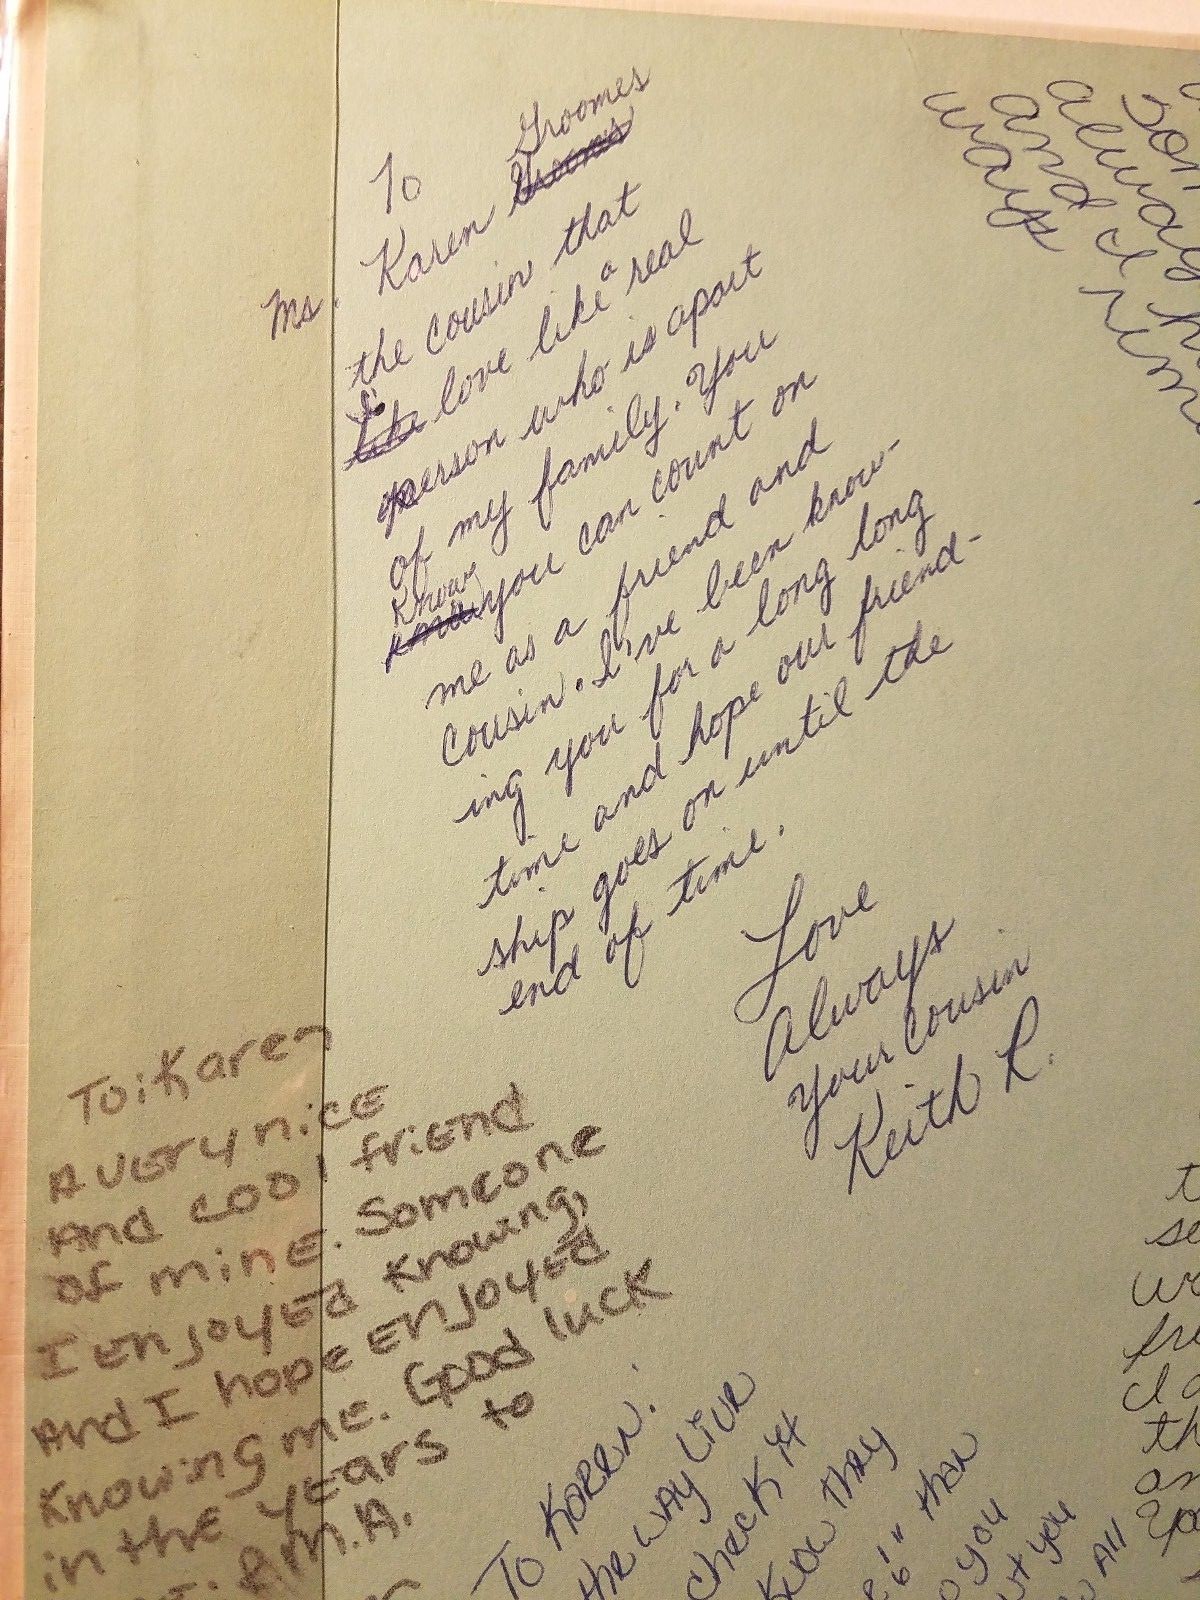 To
Ms. Karen Groomes
the cousin that
I love like a real
person who is apart
of my family. You
know you can count on
me as a friend and
cousin. I've been know-
ing you for a long long
time and hope our friend-
ship goes on until the
end of time.
Love
Always
Your Cousin
Keith R.
To: Karen
A VERY nicE
And cool friEnd
of minE. Someone
I EnjoyEd Knowing,
And I hope EnjoyEd
Knowing mE. Good luck
in the yEars to
M.A.
To KAREN:
the WAY
CHECK it
KNOW they
than
you
you
All
always
and I
ways